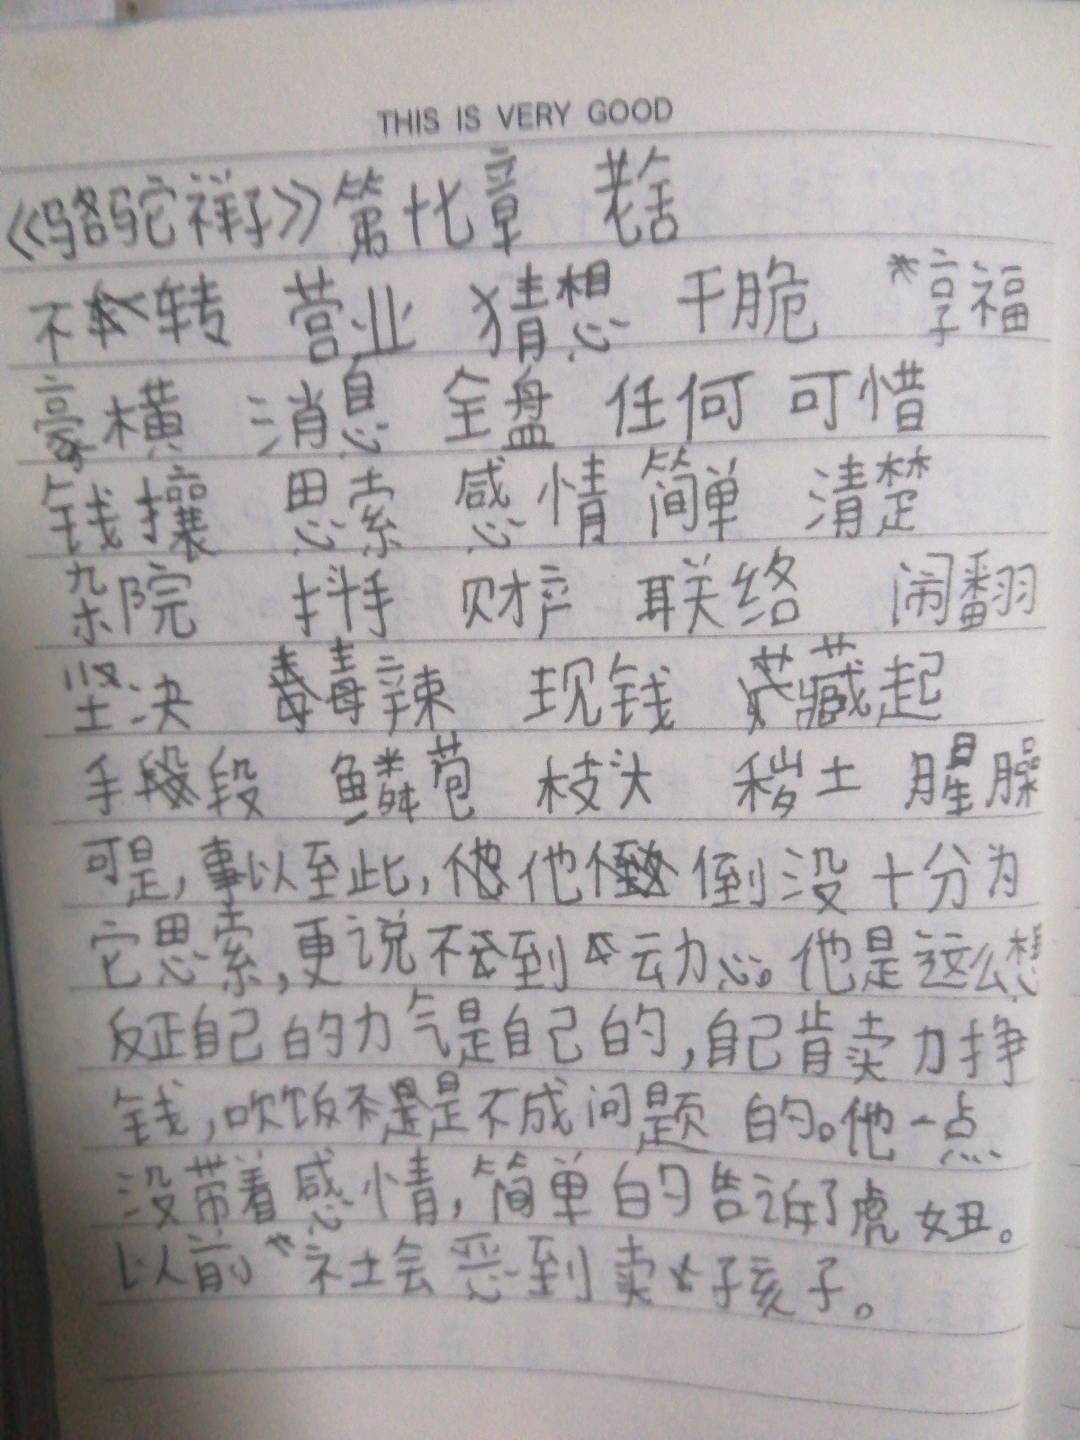 THIS IS VERY GOOD
《骆驼祥子》第十七章 老舍
不转 营业 猜想 干脆 *享福
豪横 消息 全盘 任何 可惜
钱攘 思索 感情 简单 清楚
杂院 抖手 财产 联络 闹翻
坚决 毒辣 现钱 藏起
手段 鳞苞 枝头 秽土 腥臊
可是,事以至此,他倒没十分为
它思索,更说不到动心。他是这么想
反正自己的力气是自己的,自己肯卖力挣
钱,吹饭是不成问题的。他一点
没带着感情,简单的告诉了虎妞。
以前*社会恶到卖好孩子。